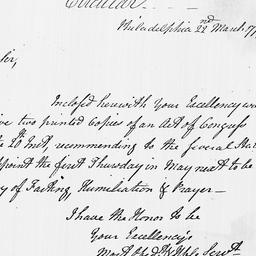 Circular.
Philadelphia 22nd March 17
Sir,
Inclosed herewith Your Excellency w
ive two printed Copies of an Act of Congress
e 20th Inst, recommending to the several Sta
ppoint the first Thursday in May next to be
y of Fasting, Humiliation & Prayer—
I have the Honor to be
Your Excellency's
Most Obedt & Hble Servt